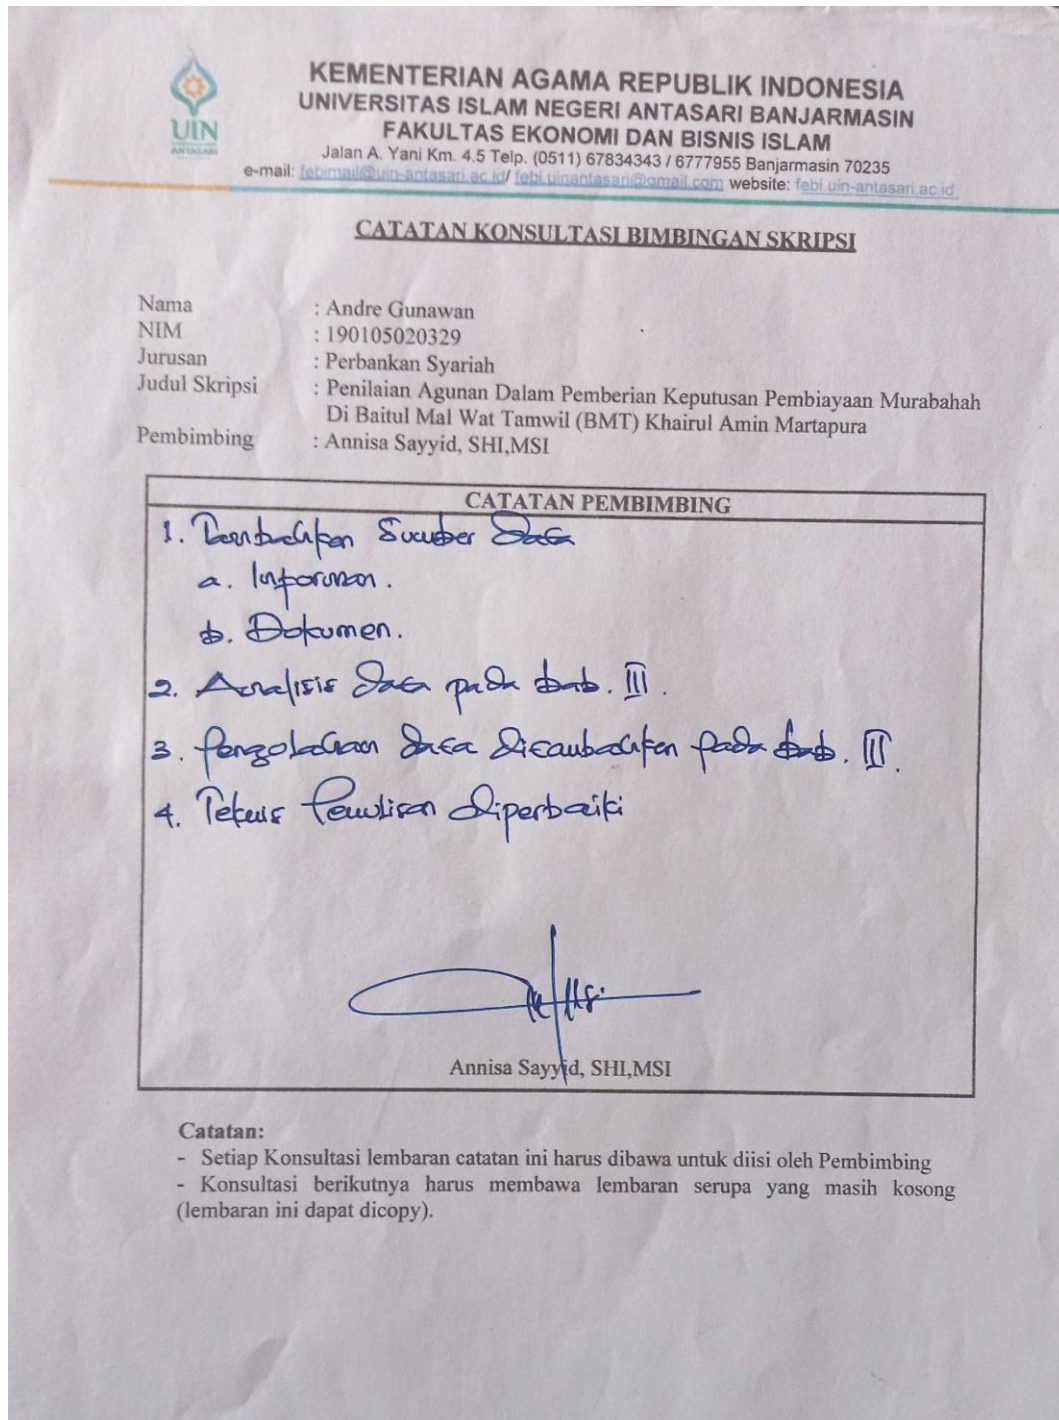 KEMENTERIAN AGAMA REPUBLIK INDONESIA
UNIVERSITAS ISLAM NEGERI ANTASARI BANJARMASIN
FAKULTAS EKONOMI DAN BISNIS ISLAM
UIN
ANTASARI
Jalan A. Yani Km. 4.5 Telp. (0511) 67834343 / 6777955 Banjarmasin 70235
e-mail: febimail@uin-antasari.ac.id/ febi.uinantasari@gmail.com website: febi.uin-antasari.ac.id
CATATAN KONSULTASI BIMBINGAN SKRIPSI
Nama : Andre Gunawan
NIM : 190105020329
Jurusan : Perbankan Syariah
Judul Skripsi : Penilaian Agunan Dalam Pemberian Keputusan Pembiayaan Murabahah
Di Baitul Mal Wat Tamwil (BMT) Khairul Amin Martapura
Pembimbing : Annisa Sayyid, SHI,MSI
CATATAN PEMBIMBING
1. Tambahkan Sumber Data
a. Informan.
b. Dokumen.
2. Analisis Data pada bab. III.
3. Pengolahan Data Ditambahkan pada bab. III.
4. Teknis Penulisan diperbaiki
Annisa Sayyid, SHI,MSI
Catatan:
- Setiap Konsultasi lembaran catatan ini harus dibawa untuk diisi oleh Pembimbing
- Konsultasi berikutnya harus membawa lembaran serupa yang masih kosong
(lembaran ini dapat dicopy).